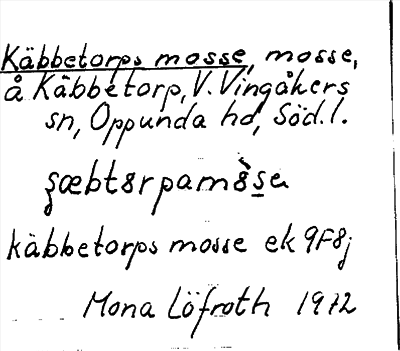 Käbbetorps mosse, mosse,
å Käbbetorp, V. Vingåkers
sn, Oppunda hd, Söd. l.
käbbetorps mosse ek 9F8j
Mona Löfroth 1972